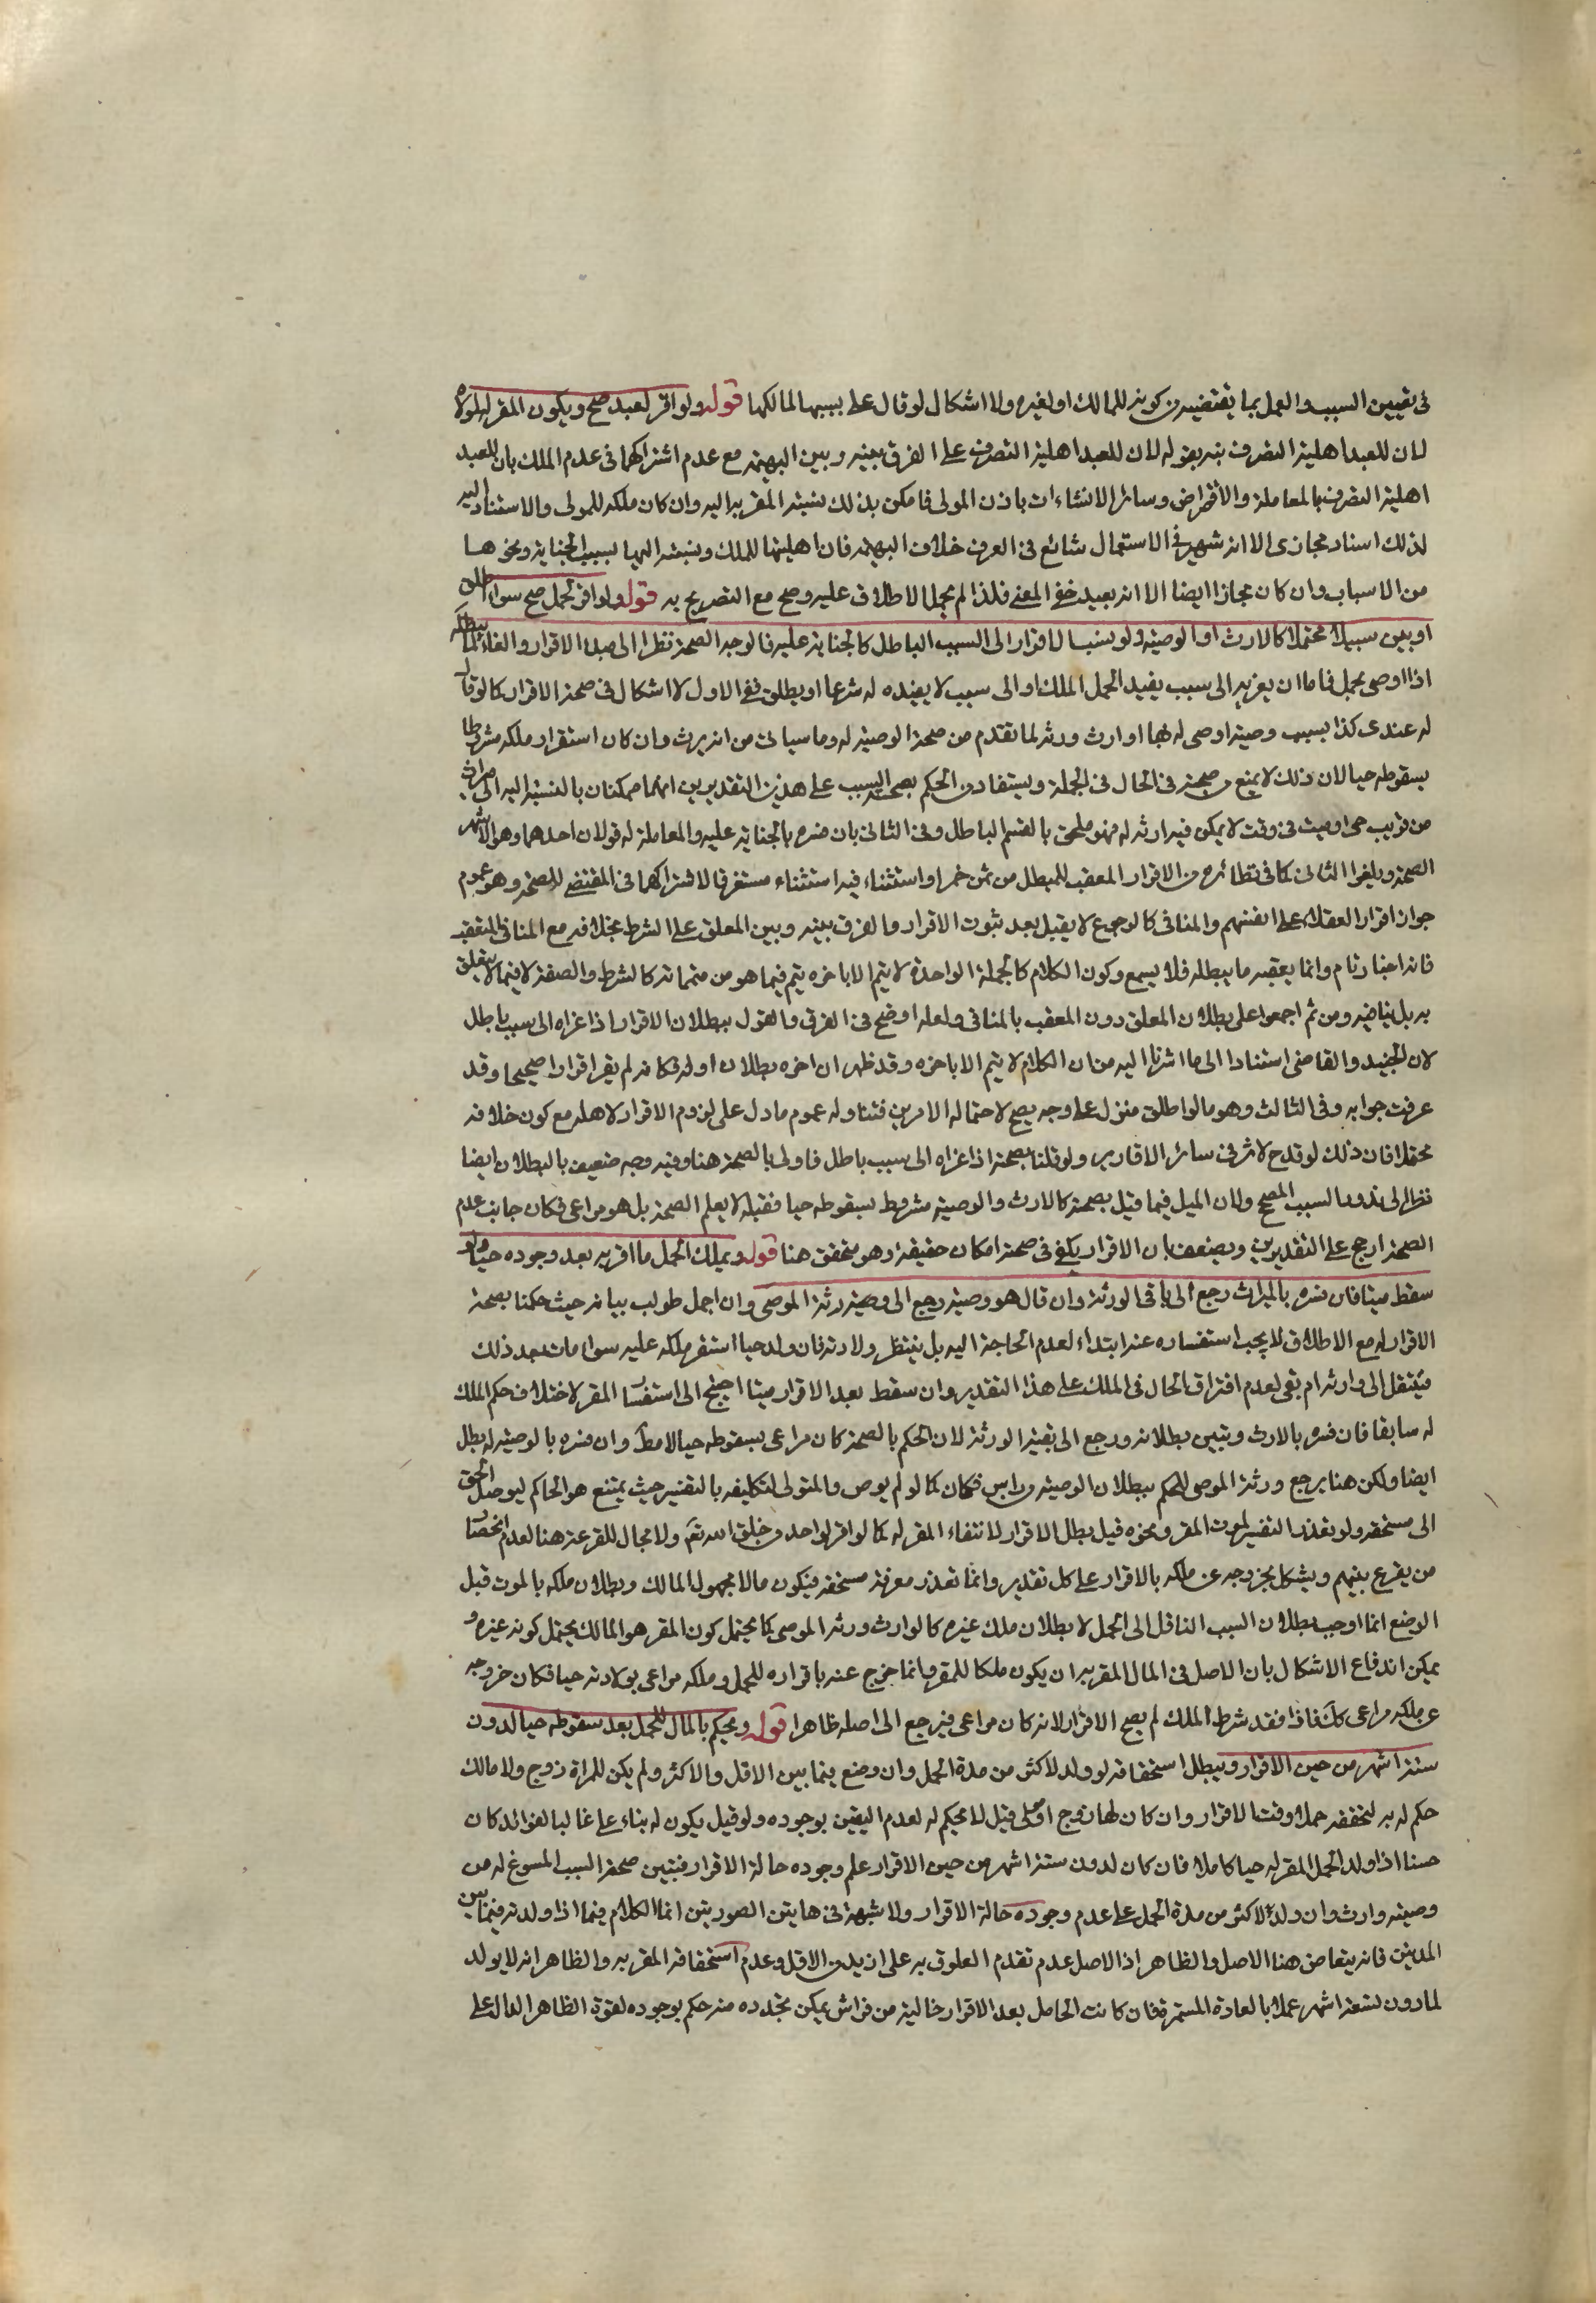 في تعيين السبب والعمل بما يقتضيه من كونه للمالك او لغيره ولا اشكال لو قال علي بسببها لمالكها قوله ولو اقر لعبد صح ويكون المقر له لمولاه
لان للعبد اهلية التصرف نبه بقوله لان للعبد اهلية التصرف على الفرق بينه وبين البهيمة مع عدم اشتراكهما في عدم الملك بان للعبد
اهلية التصرف بالمعاملة والاقراض وسائر الانشاءات باذن المولى فامكن بذلك نسبة المقر به اليه وان كان ملكه للمولى والاستناد اليه
لذلك اسناد مجازى الا انه شهير في الاستعمال شائع في العرف خلاف البهيمة فان اهليتها للملك ونسبته اليها بسبب الجناية ونحوها
من الاسباب وان كان مجازا ايضا الا انه بعيد خفي المعنى فلذا لم يحمل الاطلاق عليه وصح مع التصريح به قوله ولو اقر لحمل صح سواء اطلق
او بين سببا محتملا كالارث او الوصية ولو نسب الاقرار الى السبب الباطل كالجناية عليه فالوجه الصحة نظرا الى مبدا الاقرار والغاء لما يبطله
اذا اوصى لحمل فاما ان يعزيه الى سبب يفيد الحمل الملك او الى سبب لا يفيده له شرعا او يطلق ففي الاول لا اشكال في صحة الاقرار كما لو قال
له عندى كذا بسبب وصية اوصى له بها او ارث ورثه لما تقدم من صحة الوصية له وما سياتى من انه يرث وان كان استقرار ملكه مشروطا
بسقوطه حيا لان ذلك لا يمنع من صحته في الحال في الجملة ويستفاد من الحكم بصحة السبب على هذين التقديرين انهما ممكنان بالنسبة اليه الى ميراث
من قريب حي او ميت في وقت لا يمكن فيه ارثه له فهو ملحق بالقسم الباطل وفي الثانى بان فسره بالجناية عليه والمعاملة له قولان احدهما وهو الاشهر
الصحة ويلغو الثانى كما في نظائره من الاقرار المعقب للمبطل من ثمن خمر او استثناء فيه استثناء مستغرقا لاشتراكهما في المقتضى للصحة وهو عموم
جواز اقرار العقلاء على انفسهم والمنافى كالرجوع لا يقبل بعد ثبوت الاقرار والفرق بينه وبين المعلق على الشرط بخلافه مع المنافى المتعقب
فانه اخبار تام وانما يعقبه ما يبطله فلا يسمع وكون الكلام كالجملة الواحدة لا يتم الا باخره يتم فيما هو من متمماته كالشرط والصفة لا فيما لا يتعلق
به بل يناقضه ومن ثم اجمعوا على بطلان المعلق دون المعقب بالمنافى ولعله اوضح في الفرق والقول ببطلان الاقرار اذا عزاه الى سبب باطل
لابن الجنيد والقاضى استنادا الى ما اشرنا اليه من ان الكلام لا يتم الا باخره وقد ظهر ان اخره بطلان اوله فكانه لم يقر اقرارا صحيحا وقد
عرفت جوابه وفى الثالث وهو ما لو اطلق منزل على وجه يصح لاحتماله الامرين فتناوله عموم ما دل على لزوم الاقرار لاهله مع كون خلافه
محتملا فان ذلك لو قدح لاثر في سائر الاقارير ولو قلنا بصحته اذا عزاه الى سبب باطل فاولى بالصحة هنا وفيه وجه ضعيف بالبطلان ايضا
نظرا الى ندور السبب المصحح ولان الميل فيما قيل بصحته كالارث والوصية مشروط بسقوطه حيا فقبله لا يعلم الصحة بل هو مراعى فكان جانب عدم
الصحة ارجح على التقديرين ويضعف بان الاقرار يكفي في صحته امكان حقيقته وهو متحقق هنا قوله ويملك الحمل ما اقر به بعد وجوده حيا ولو
سقط ميتا فان فسره بالميراث رجع الى باقى الورثة وان قال هو وصية رجع الى ورثة الموصى وان اجمل طولب ببيانه حيث حكمنا بصحة
الاقرار له مع الاطلاق لا يجب استفساره عنه ابتداء لعدم الحاجة اليه بل ينتظر ولادته فان ولد حيا استقر ملكه عليه سواء مات بعد ذلك
فينتقل الى وارثه ام بقى لعدم افتراق الحال في الملك على هذا التقدير وان سقط بعد الاقرار ميتا احتيج الى استفسار المقر لاختلاف حكم الملك
له سابقا فان فسره بالارث وتبين بطلانه ورجع الى بقية الورثة لان الحكم بالصحة كان مراعى بسقوطه حيا لا مطلقا وان فسره بالوصية له بطل
ايضا ولكن هنا يرجع ورثة الموصى للحكم ببطلان الوصية من راس فكان كما لو لم يوص والمتولى لتكليفه بالتفسير حيث يمتنع هو الحاكم ليوصل الحق
الى مستحقه ولو تعذر التفسير لموت المقر ونحوه قيل بطل الاقرار لانتفاء المقر له كما لو اقر لواحد من خلق الله تعالى ولا مجال للقرعة هنا لعدم انحصار
من يقرع بينهم ويشكل بخروجه عن ملكه بالاقرار على كل تقدير وانما تعذر معرفة مستحقه فيكون مالا مجهول المالك وبطلان ملكه بالموت قبل
الوضع انما اوجب بطلان السبب الناقل الى الحمل لا بطلان ملك غيره كالوارث وورثة الموصى كما يحتمل كون المقر هو المالك يحتمل كونه غيره و
يمكن اندفاع الاشكال بان الاصل في المال المقر به ان يكون ملكا للمقر وانما خرج عنه باقراره للحمل وملكه مراعى بولادته حيا فكان خروجه
عن ملكه مراعى كذلك فاذا فقد شرط الملك لم يصح الاقرار لانه كان مراعى فيرجع الى اصله ظاهرا قوله ويحكم بالمال للحمل بعد سقوطه حيا لدون
ستة اشهر من حين الاقرار ويبطل استحقاقه لو ولد لاكثر من مدة الحمل وان وضع فيما بين الاقل والاكثر ولم يكن للمراة زوج ولا مالك
حكم له به لتحققه حملا وقت الاقرار وان كان لها زوج او مولى قيل لا يحكم له لعدم اليقين بوجوده ولو قيل يكون له بناء على غالب العوائد كان
حسنا اذا ولد الحمل المقر له حيا كاملا فان كان لدون ستة اشهر من حين الاقرار علم وجوده حالة الاقرار فتبين صحة السبب المسوغ له من
وصية وارث وان ولد لاكثر من مدة الحمل على عدم وجوده حالة الاقرار ولا شبهة في هاتين الصورتين انما الكلام فيما اذا ولدته فيما بين
المدتين فانه يتعارض هنا الاصل والظاهر اذ الاصل عدم تقدم العلوق به على ازيد من الاقل وعدم استحقاقه المقر به والظاهر انه لا يولد
لما دون تسعة اشهر عملا بالعادة المستمرة فان كانت الحامل بعد الاقرار خالية من فراش يمكن تجدده منه حكم بوجوده لقوة الظاهر الدال على